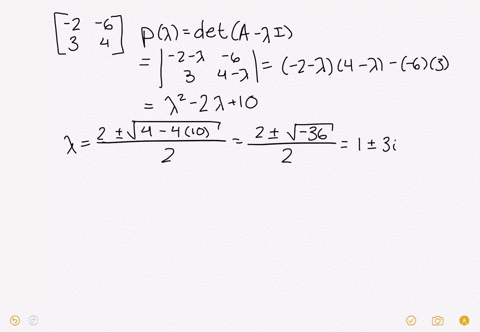 [-2 -6
3 4] p(λ) = det(A - λI)
= |-2-λ -6
3 4-λ| = (-2-λ)(4-λ) - (-6)(3)
= λ² - 2λ + 10
λ = (2 ± √(4 - 4(10)))/2 = (2 ± √(-36))/2 = 1 ± 3i